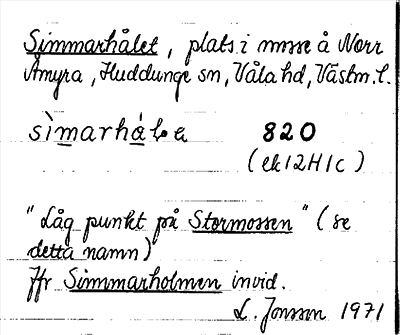 Simmarhålet, plats i mosse å Norr
Åmyra, Huddunge sn, Våla hd, Västm. l.
sìmarhá̵le
820
(ek 12H1c)
"Låg punkt på Stormossen" (se
detta namn)
Jfr Simmarholmen invid.
L. Jonsson 1971